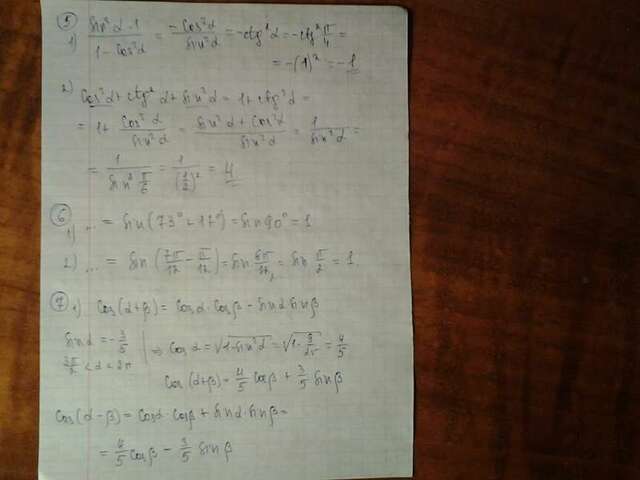 ⑤
1) (sin²α - 1)/(1 - cos²α) = (-cos²α)/(sin²α) = -ctg²α = -ctg² π/4 =
= -(1)² = -1
2) cos²α + ctg²α + sin²α = 1 + ctg²α =
= 1 + cos²α/sin²α = (sin²α + cos²α)/sin²α = 1/sin²α =
= 1/(sin² π/6) = 1/(1/2)² = 4
⑥
1) ... = sin(73° + 17°) = sin 90° = 1
2) ... = sin(7π/12 - π/12) = sin 6π/12 = sin π/2 = 1
⑦ 1) cos(α+β) = cosα · cosβ - sinα sinβ
sinα = -3/5
3π/2 < α < 2π
⇒ cosα = √(1 - sin²α) = √(1 - 9/25) = 4/5
cos(α+β) = 4/5 cosβ + 3/5 sinβ
cos(α - β) = cosα · cosβ + sinα · sinβ =
= 4/5 cosβ - 3/5 sinβ